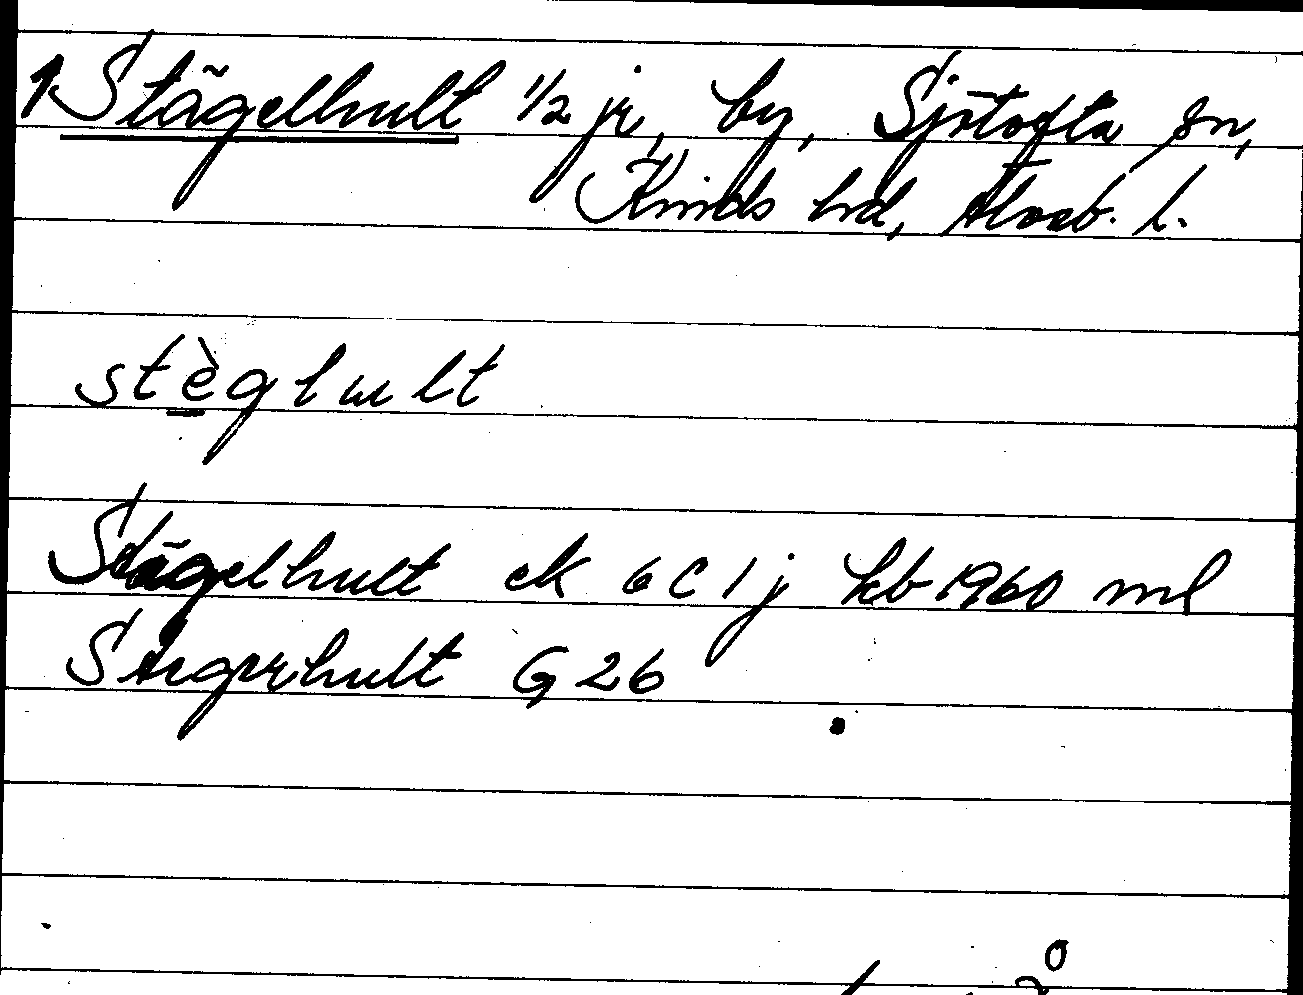 1. Stägelhult 1/2 jr, by, Sjötofta sn,
Kinds hd, Älvsb. l.
stèglult
Stägelhult ek 6 C 1 j kb 1960 ml
Stegerhult G 26